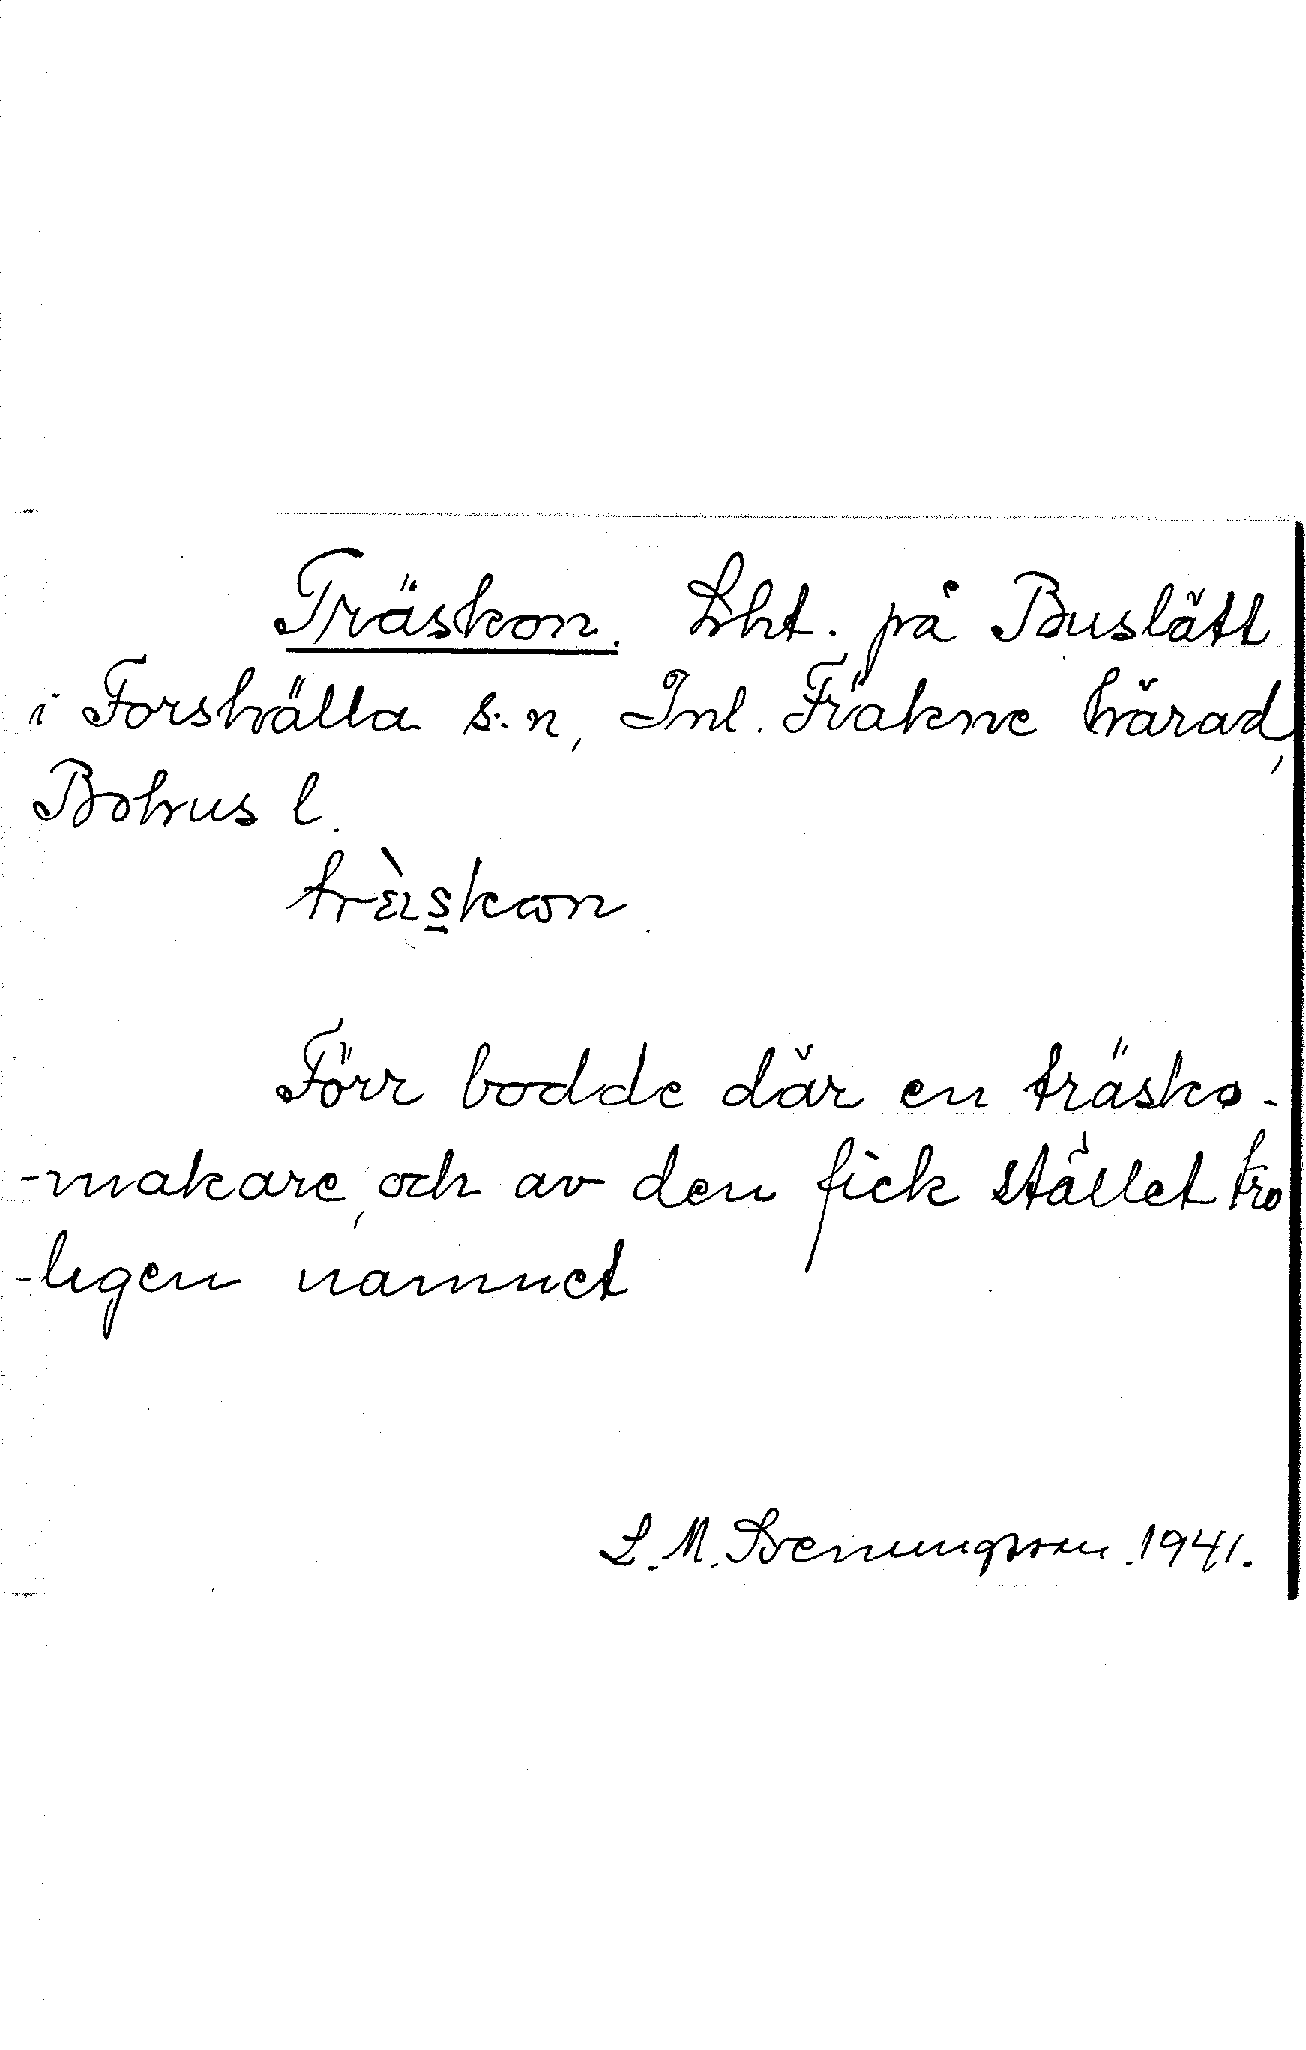 Träskon. Lht. på Buslätt
i Forshälla s:n, Inl. Fräkne härad,
Bohus l.
trä̀skon
Förr bodde där en träsko-
-makare, och av den fick stället tro
-ligen namnet
L. M. Svenungsson. 1941.